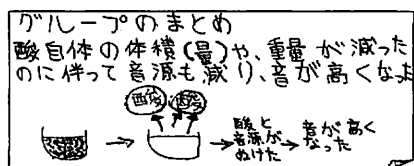 グループのまとめ
酸自体の体積(量)や、重量が減った
のに伴って音源も減り、音が高くなった
酸 酸
→ → 酸と音源がぬけた → 音が高くなった